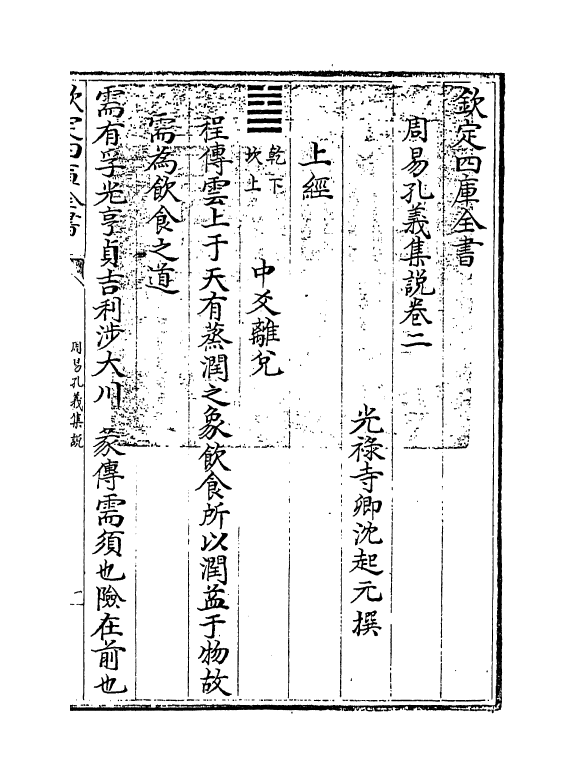 欽定四庫全書
周易孔義集說卷二
光祿寺卿沈起元撰
上經
䷄ 乾下 坎上 中爻離兌
程傳雲上于天有蒸潤之象飲食所以潤益于物故
需為飲食之道
需有孚光亨貞吉利涉大川 彖傳需須也險在前也
欽定四庫全書 周易孔義集說